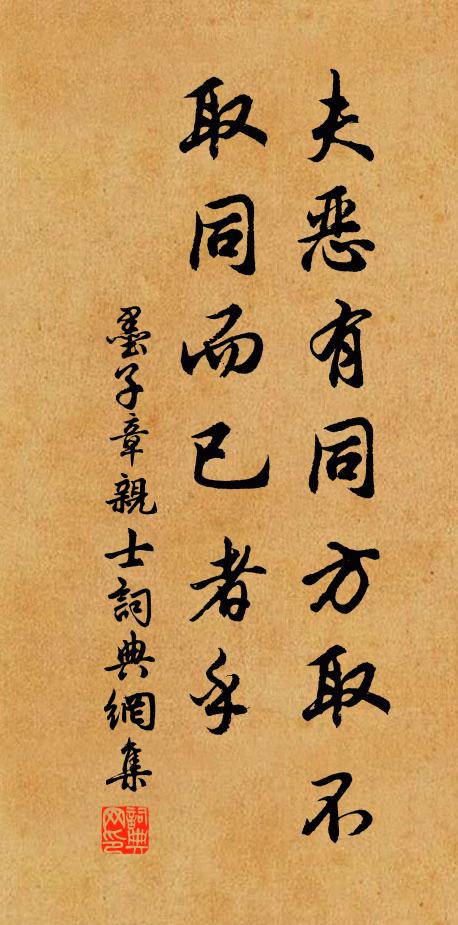 夫恶有同方取不
取同而已者乎
墨子章親士詞典網集
詞典网印